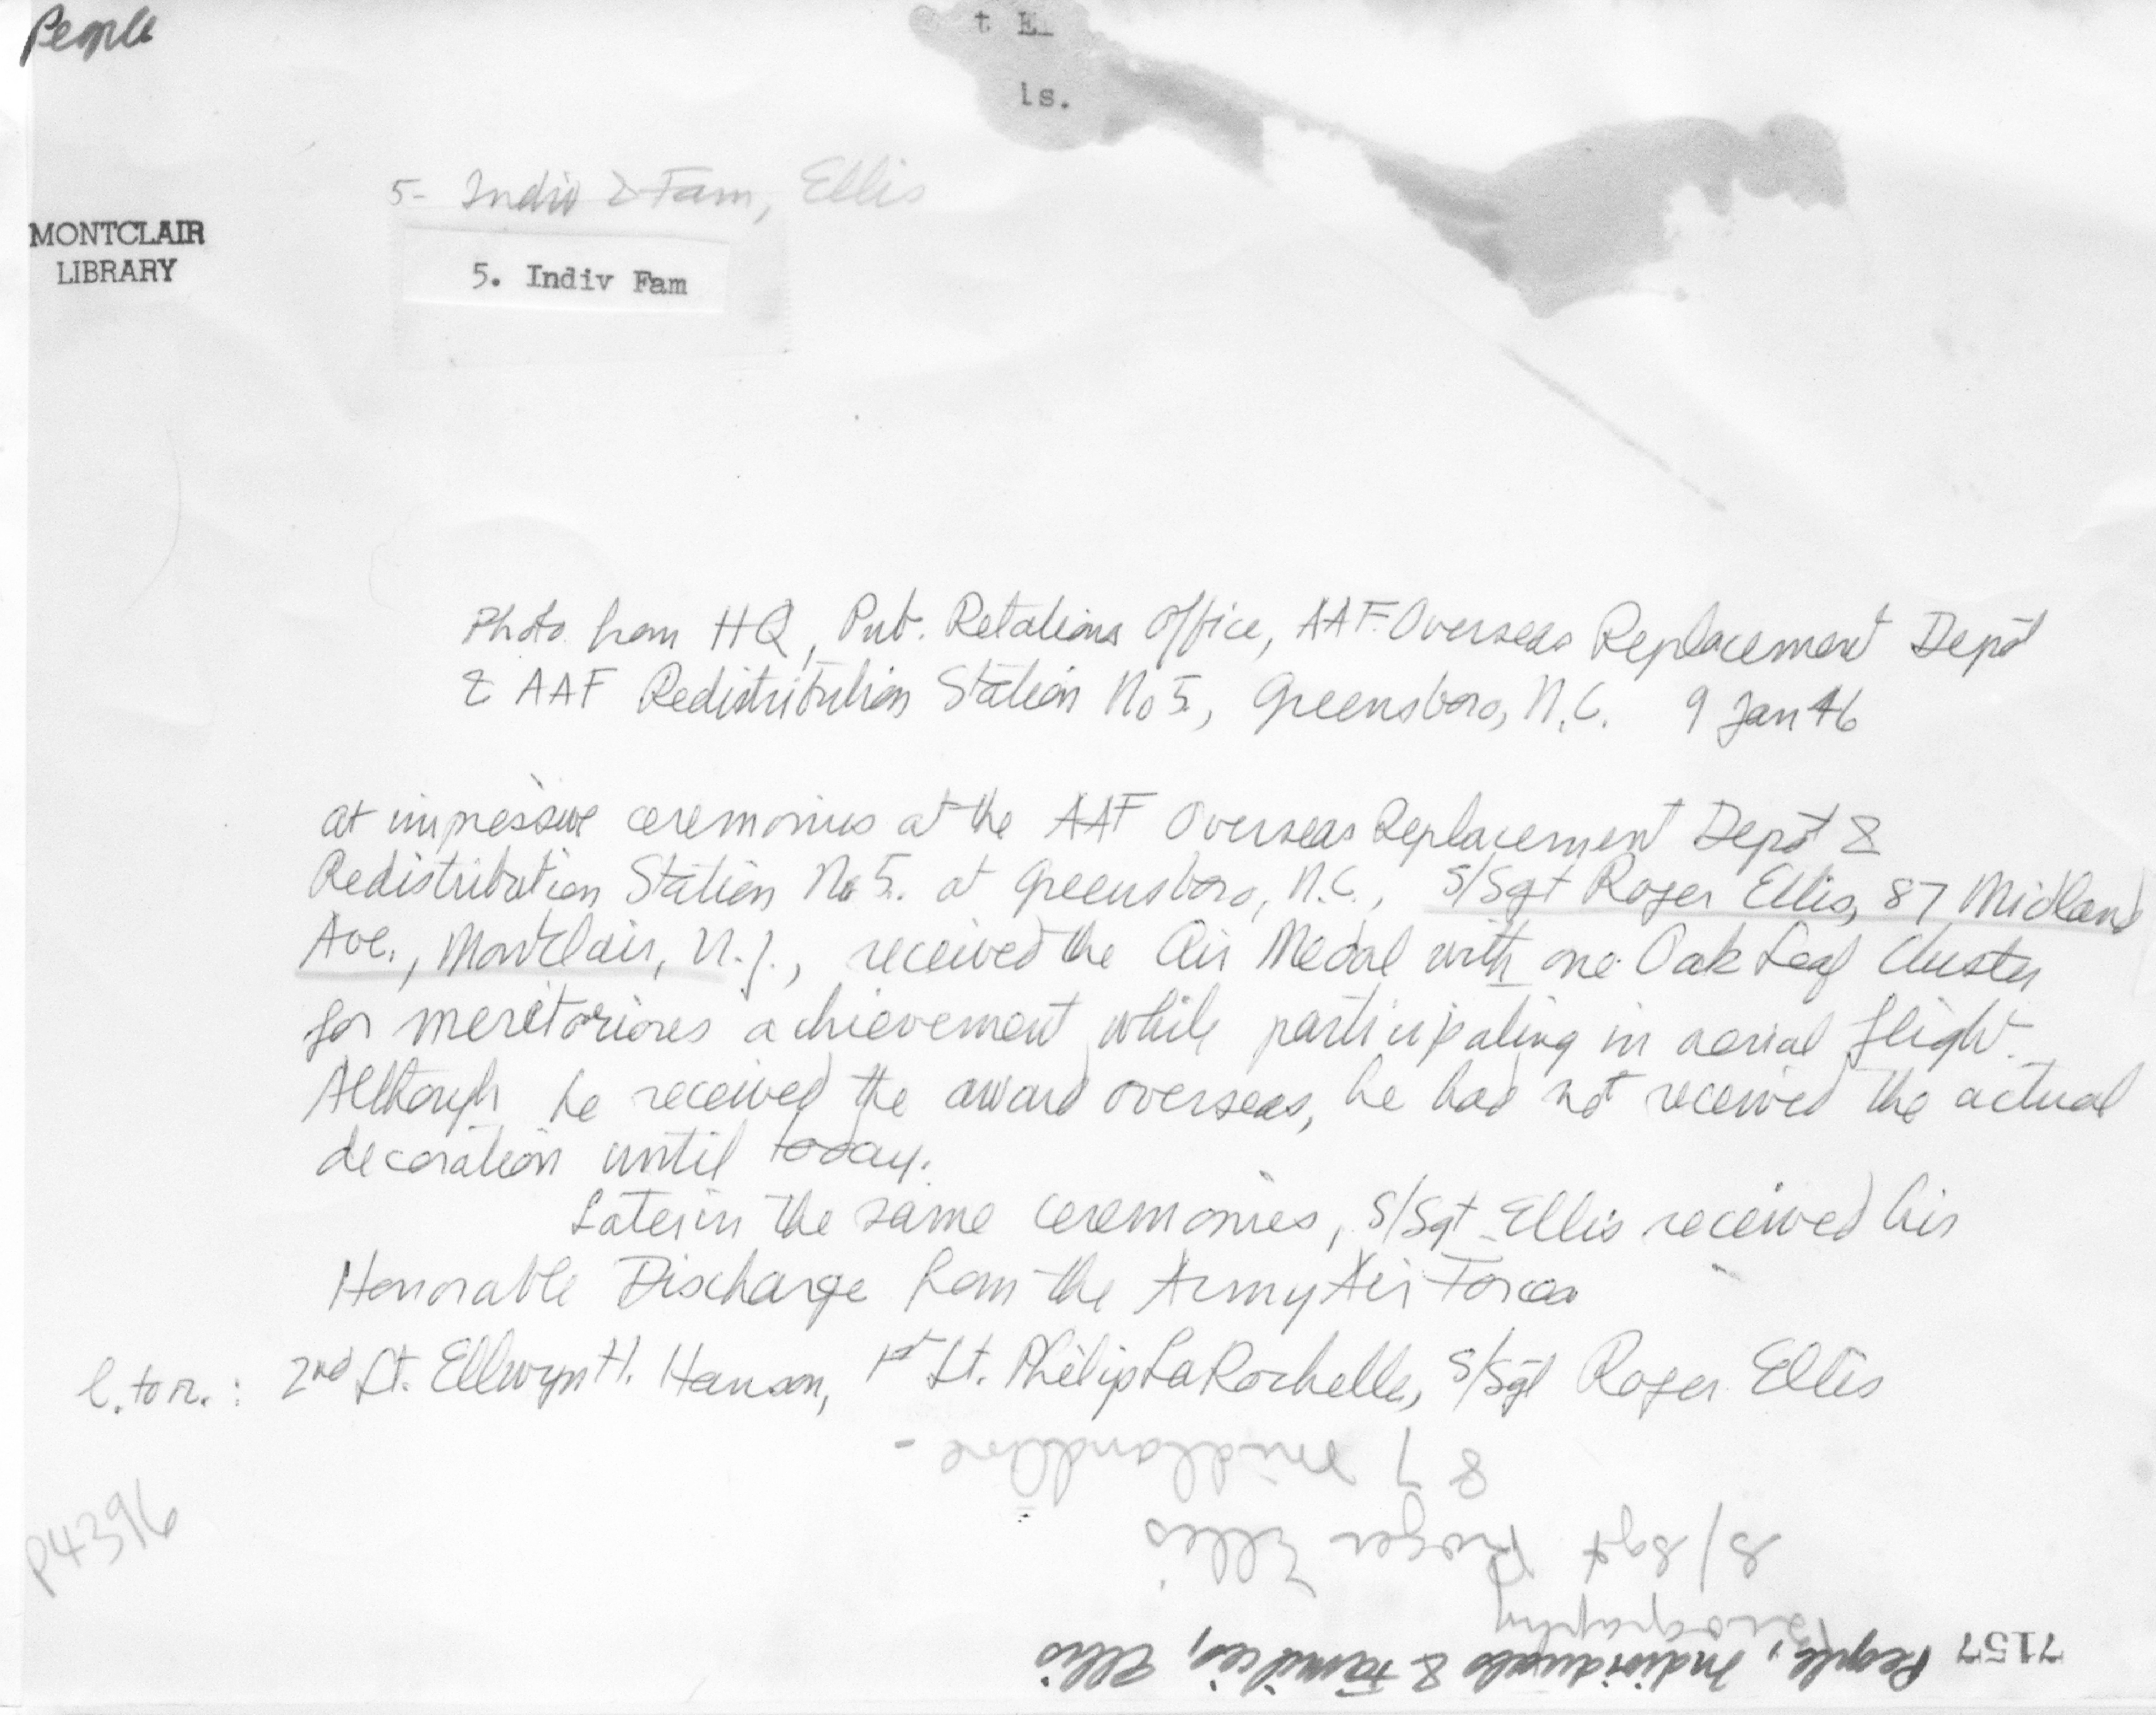 People
t El
is.
5- Indiv & Fam, Ellis
MONTCLAIR
LIBRARY
5. Indiv Fam
Photo from HQ, Pub. Relations Office, AAF Overseas Replacement Depot
& AAF Redistribution Station No 5, Greensboro, N.C. 9 Jan 46
at impressive ceremonies at the AAF Overseas Replacement Depot &
Redistribution Station No 5. at Greensboro, N.C., S/Sgt Roger Ellis, 87 Midland
Ave., Montclair, N.J., received the Air Medal with one Oak Leaf Cluster
for meritorious achievement while participating in aerial flight.
Although he received the award overseas, he had not received the actual
decoration until today.
Later in the same ceremonies, S/Sgt Ellis received his
Honorable Discharge from the Army Air Forces
l. to r.: 2nd Lt. Ellwyn H. Hanson, 1st Lt. Philip LaRochelle, S/Sgt Roger Ellis
P4396
7157 People, Individuals & Families, Ellis
Biography
S/Sgt Roger Ellis
87 Midland Ave -